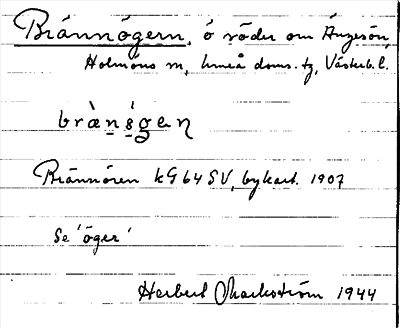 Brännögern, ö söder om Ängesön,
Holmöns sn, Umeå doms. tg, Västerb. l.
brὰn̠ŝ̠gen
Brännören kG 64 SV, bykart. 1907
Se 'öger'
Herbert Markström 1944